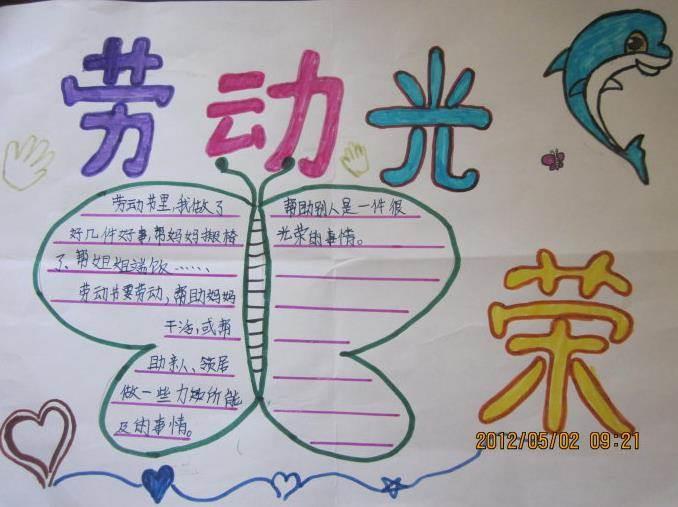 劳动光
荣
劳动节里，我做了
好几件好事，帮妈妈搬椅
子、帮姐姐端饭……
劳动节要劳动，帮助妈妈
干活，或帮
助亲人、领居
做一些力如所能
及的事情。
帮助别人是一件很
光荣的事情。
2012/05/02 09:21